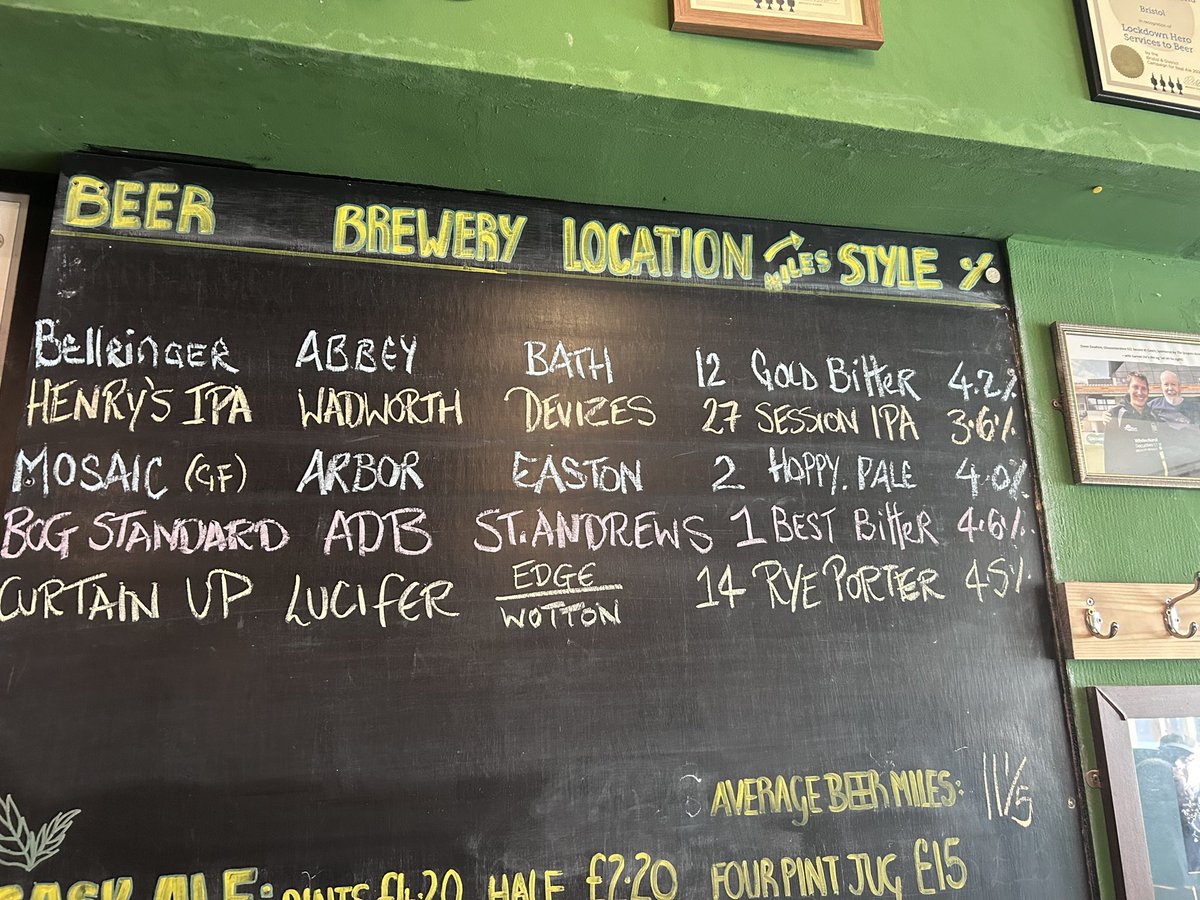 Bristol
in recognition of
Lockdown Hero
Services to Beer
by the
Bristol & District
BEER BREWERY LOCATION MILES STYLE %
Bellringer ABBEY BATH 12 GOLD BitteR 4.2%
HENRY'S IPA WADWORTH DEVIZES 27 SESSION IPA 3.6%
MOSAIC (GF) ARBOR EASTON 2 HOPPY. PALE 4.0%
BOG STANDARD ADB ST. ANDREWS 1 BEST BitteR 4.6%
CURTAIN UP LUCIFER EDGE 14 RYE PORTER 4.5%
WOTTON
AVERAGE BEER MILES: 11/5
CASK ALE: PINTS £4.20 HALF £2.20 FOUR PINT JUG £15